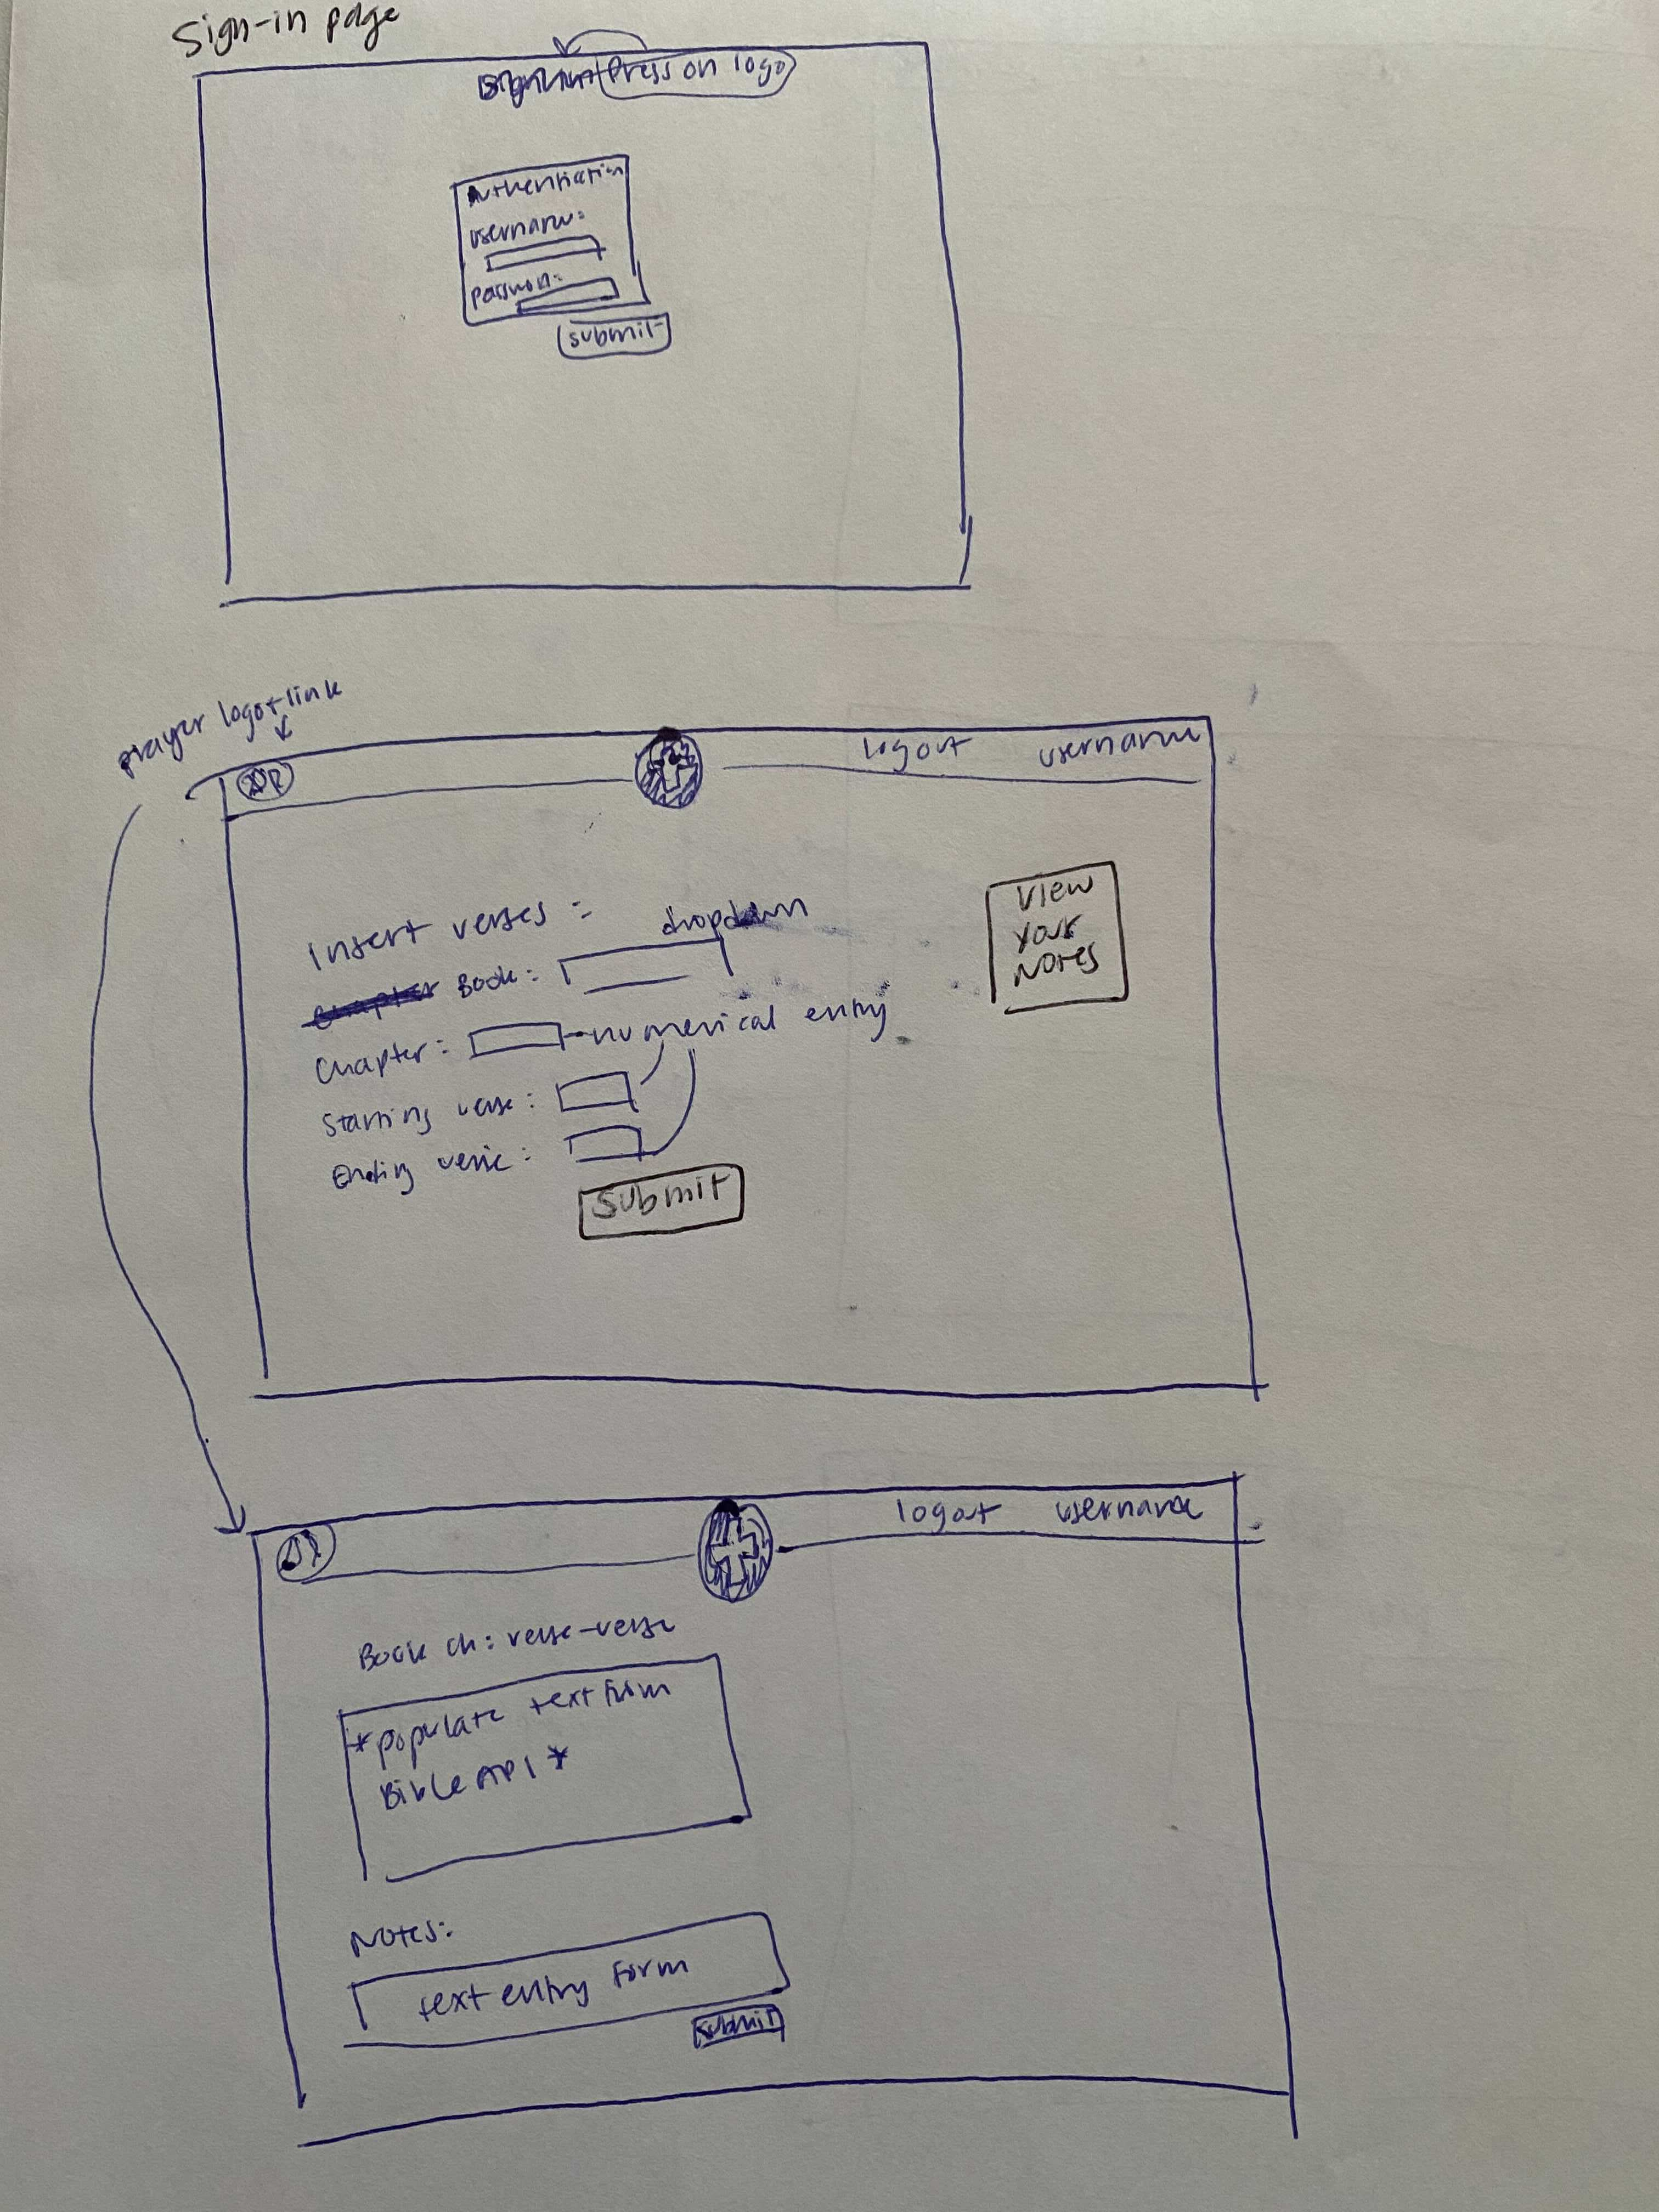 Sign-in page
Press on logo
Authentication
username:
submit
prayer logo + link
logout username
Insert verses :
dropdown
Book :
Chapter : numerical entry
Starting verse :
Ending verse :
Submit
View
Your
Notes
logout username
Book Ch : verse-verse
*populate text from
Bible API *
Notes:
text entry form
submit